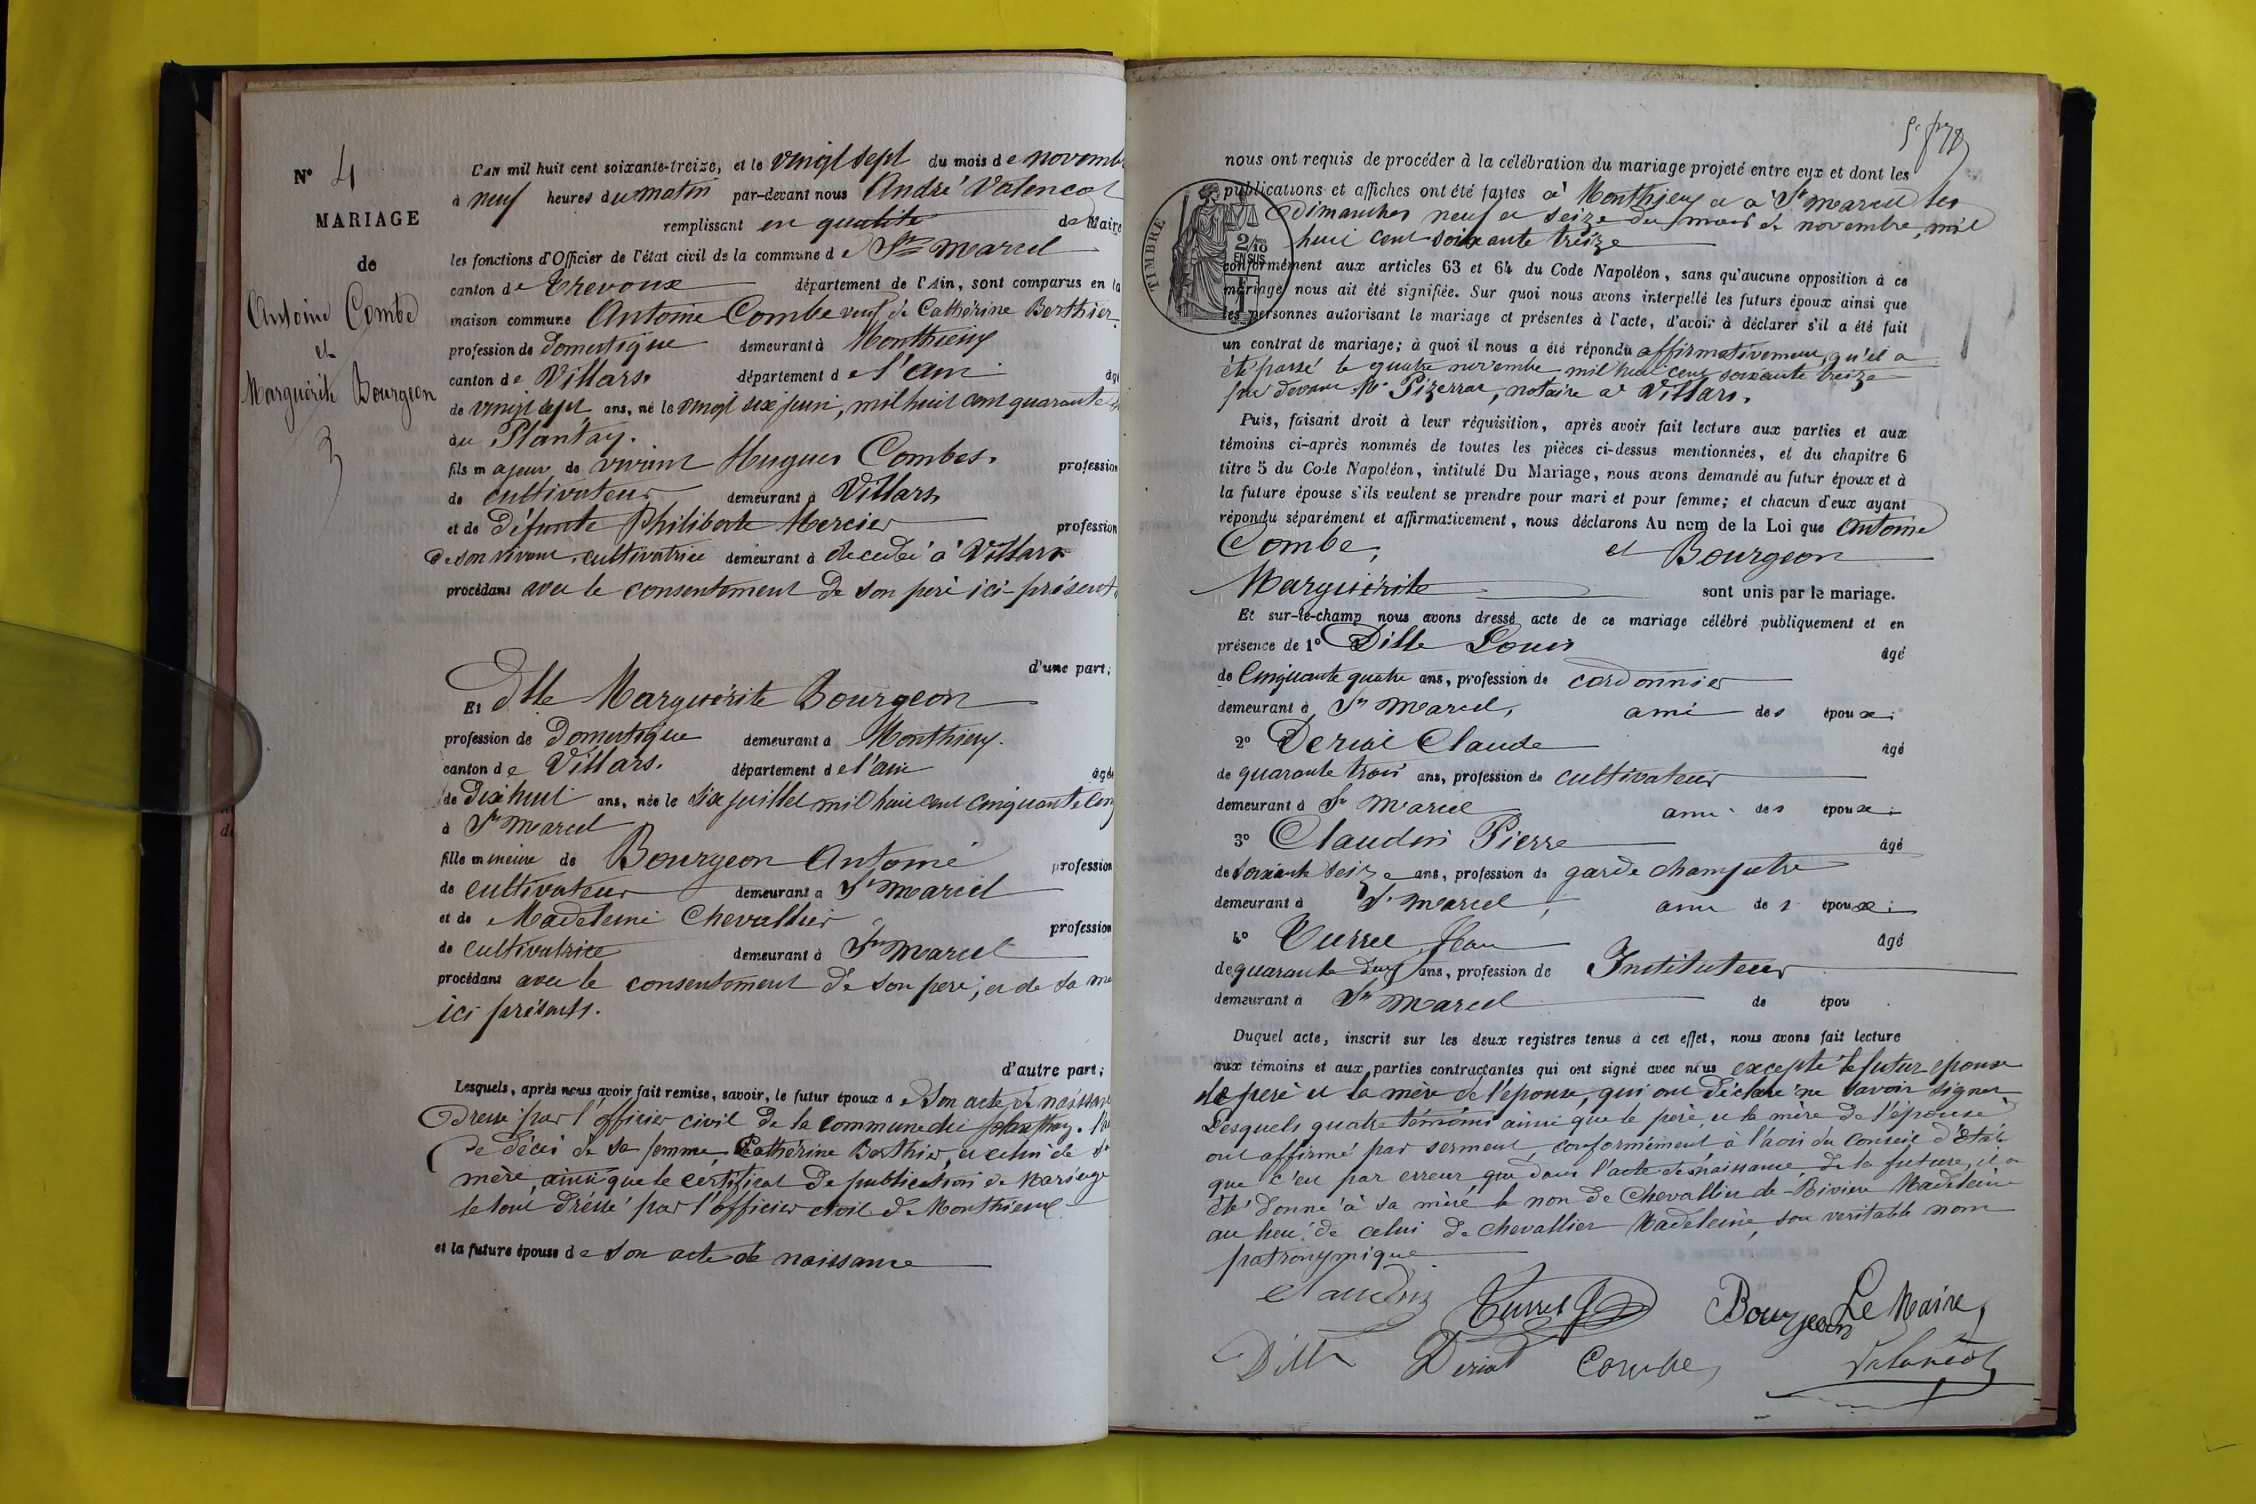 N° 4
MARIAGE
de
Antoine Combe
et
Marguérite Bourgeon
3
L'AN mil huit cent soixante-treize, et le vingt sept du mois de novemb
à neuf heures du matin par-devant nous André Valencot
remplissant en qualité de Maire
les fonctions d'Officier de l'état civil de la commune de St Marcel
canton de Trevoux département de l'Ain, sont comparus en la
maison commune Antoine Combe veuf de Cathérine Berthier
profession de domestique demeurant à Monthieux
canton de Villars. département de l'ain âgé
de vingt sept ans, né le vingt six juin, mil huit cent quarante
au Plantay.
fils majeur de vivant Hugues Combes. profession
de cultivateur demeurant à Villars
et de défunte Philiberte Mercier profession
de son vivant cultivatrice demeurant à décédé à Villars
procédant avec le consentement de son père ici présent
d'une part;
Et Dlle Marguérite Bourgeon
profession de domestique demeurant à Monthieux.
canton de Villars. département de l'ain âgée
de dix huit ans, née le six juillet mil huit cent cinquante cinq
à St Marcel
fille mineure de Bourgeon Antoine profession
de cultivateur demeurant à St Marcel
et de Madeleine Chevallier profession
de cultivatrice demeurant à St Marcel
procédant avec le consentement de son père, et de sa me
ici présents.
d'autre part;
Lesquels, après nous avoir fait remise, savoir, le futur époux de son acte de naissan
dressé par l'officier civil de la commune du plantay.
de décès de sa femme Cathérine Berthier, et celui de sa
mère, ainsi que le certificat de publication de Mariage
le tout dréssé par l'officier civil de Monthieux
et la future épouse de son acte de naissance
nous ont requis de procéder à la célébration du mariage projeté entre eux et dont les
publications et affiches ont été faites à Monthieux et à St Marcel les
dimanches neuf et seize du mois de novembre, mil
huit cent soixante treize
TIMBRE
2/10
EN SUS
conformément aux articles 63 et 64 du Code Napoléon, sans qu'aucune opposition à ce
mariage nous ait été signifiée. Sur quoi nous avons interpellé les futurs époux ainsi que
les personnes autorisant le mariage et présentes à l'acte, d'avoir à déclarer s'il a été fait
un contrat de mariage; à quoi il nous a été répondu affirmativement, qu'il a
été passé le quatre novembre mil huit cent soixante treize
par devant Me Pizerrat, notaire à Villars.
Puis, faisant droit à leur réquisition, après avoir fait lecture aux parties et aux
témoins ci-après nommés de toutes les pièces ci-dessus mentionnées, et du chapitre 6
titre 5 du Code Napoléon, intitulé Du Mariage, nous avons demandé au futur époux et à
la future épouse s'ils veulent se prendre pour mari et pour femme; et chacun d'eux ayant
répondu séparément et affirmativement, nous déclarons Au nom de la Loi que Antoine
Combe, et Bourgeon
Marguérite sont unis par le mariage.
Et sur-le-champ nous avons dressé acte de ce mariage célébré publiquement et en
présence de 1° Dille Louis âgé
de Cinquante quatre ans, profession de cordonnier
demeurant à St Marcel, ami des époux;
2° Deriat Claude âgé
de quarante trois ans, profession de cultivateur
demeurant à St Marcel ami des époux;
3° Claudin Pierre âgé
de soixante seize ans, profession de garde champetre
demeurant à St Marcel, ami des époux;
4° Turrel Jean âgé
de quarante deux ans, profession de Instituteur
demeurant à St Marcel de épou
Duquel acte, inscrit sur les deux registres tenus à cet effet, nous avons fait lecture
aux témoins et aux parties contractantes qui ont signé avec nous excepté la futur epouse
le père et la mère de l'épouse, qui ont déclaré ne savoir signer
Lesquels quatre témoins ainsi que le père, et la mère de l'épouse
ont affirmé par serment, conformément à l'avis du Conseil d'état
que c'est par erreur que dans l'acte de naissance, de la future, il a
été donné à sa mère le nom de Chevallier de-Riviere Madeleine
au lieu de celui de Chevallier Madeleine, son veritable nom
patronymique
Claudin Turrel J Bourgeon Le Maire,
Dille Deriat Combe, Valencot